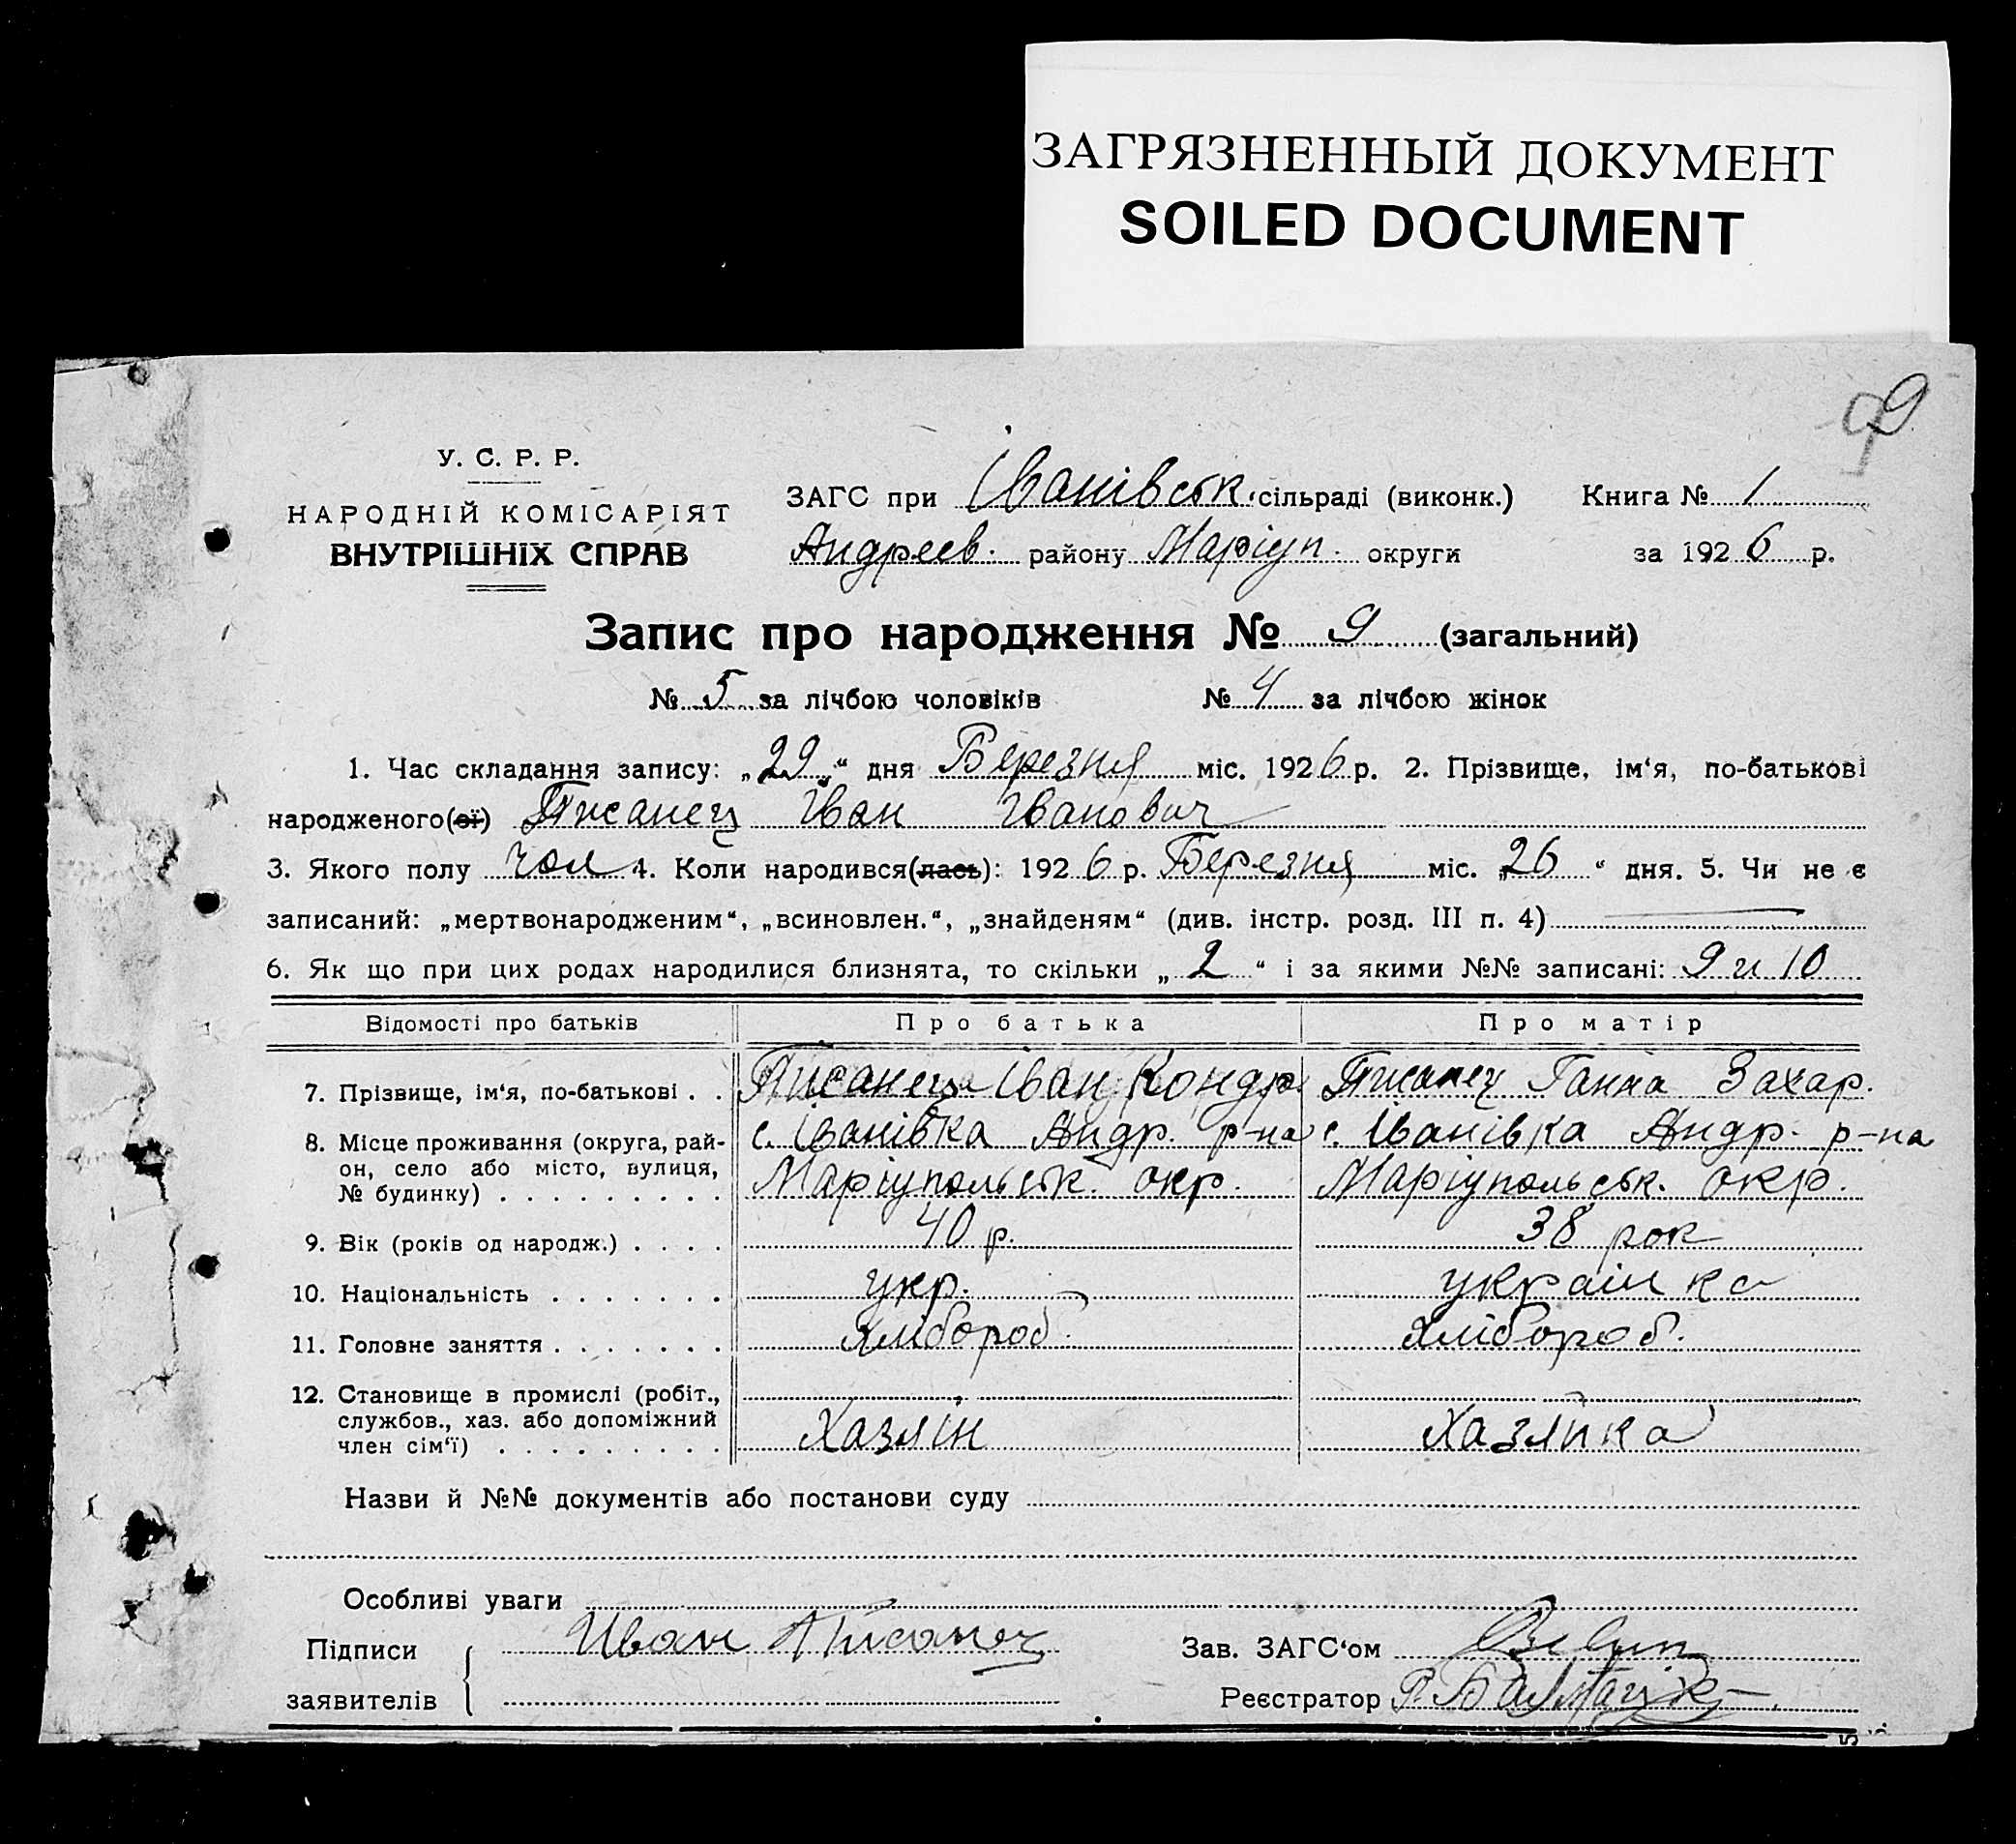 ЗАГРЯЗНЕННЫЙ ДОКУМЕНТ
SOILED DOCUMENT
99
У. С. Р. Р.
НАРОДНІЙ КОМІСАРІЯТ
ВНУТРІШНІХ СПРАВ
ЗАГС при Іванівськ. сільраді (виконк.) Книга № 1
Андреев. району Маріуп. округи за 1926 р.
Запис про народження № 9 (загальний)
№ 5 за лічбою чоловіків № 4 за лічбою жінок
1. Час складання запису: „29“ дня Березня міс. 1926 р. 2. Прізвище, ім‘я, по-батькові
народженого(ої) Писанец Іван Іванович
3. Якого полу чол 4. Коли народився(лась): 1926 р. Березня міс. „26“ дня. 5. Чи не є
записаний: „мертвонародженим“, „всиновлен.“, „знайденям“ (див. інстр. розд. III п. 4)
6. Як що при цих родах народилися близнята, то скільки „2“ і за якими №№ записані: 9 и 10
Відомості про батьків Про батька Про матір
7. Прізвище, ім‘я, по-батькові . . Писанець Іван Кондр. Писанец Ганна Захар.
8. Місце проживання (округа, рай- с. Іванівка Андр. р-на с. Іванівка Андр. р-на
он, село або місто, вулиця, Маріупольськ. окр. Маріупольськ. окр.
№ будинку) . . . . . . . . .
9. Вік (років од народж.) . . . . 40 р. 38 рок
10. Національність . . . . . . . укр. українка
11. Головне заняття . . . . . . . Хлібороб. Хлібороб.
12. Становище в промислі (робіт.,
службов., хаз. або допоміжний Хазяін Хазяйка
член сім‘ї) . . . . . . . . .
Назви й №№ документів або постанови суду
Особливі уваги
Підписи Иван Писанец Зав. ЗАГС‘ом
заявителів Реєстратор